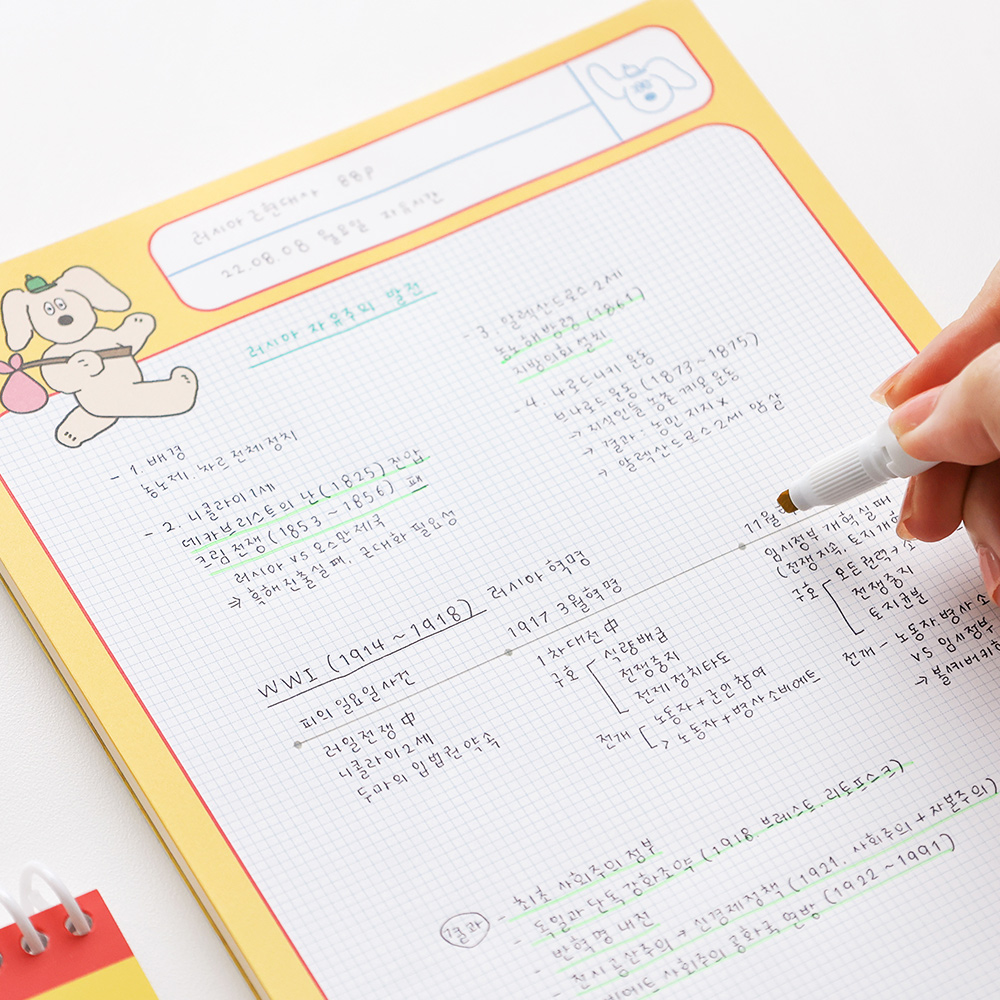 러시아 근현대사 88P
22.08.08 월요일 자유시간
러시아 자유주의 발전
- 1. 배경
농노제, 차르 전제정치
- 2. 니콜라이 1세
데카브리스트의 난(1825) 진압
크림전쟁(1853 ~ 1856) 패
러시아 vs 오스만제국
⇒ 흑해진출실패, 근대화 필요성
- 3. 알렉산드르스 2세
농노해방령 (1861)
지방의회 설치
- 4. 나로드니키 운동
브나로드 운동 (1873 ~ 1875)
→ 지식인들 농촌 계몽운동
→ 결과 : 농민 지지 X
→ 알렉산드르스 2세 암살
WWI (1914 ~ 1918) 러시아 혁명
피의 일요일 사건
러일전쟁 中
니콜라이 2세
두마의 입법권 약속
1917 3월혁명
1차대전 中
구호 [ 식량배급
전쟁중지
전제정치타도
전개 [ 노동자 + 군인 참여
> 노동자 + 병사 소비에트
11월
임시정부 개혁 실패
(전쟁 지속, 토지개혁
구호 [ 모든권력 → 소
전쟁중지
토지균분
전개 - 노동자.병사 소
vs 임시정부
→ 볼셰비키
결과
- 최초 사회주의 정부
- 독일과 단독 강화조약 (1918. 브레스트.리토프스크)
- 반혁명 내전
- 전시공산주의 → 신경제정책 (1921. 사회주의 + 자본주의)
사회주의 공화국 연방 (1922 ~ 1991)